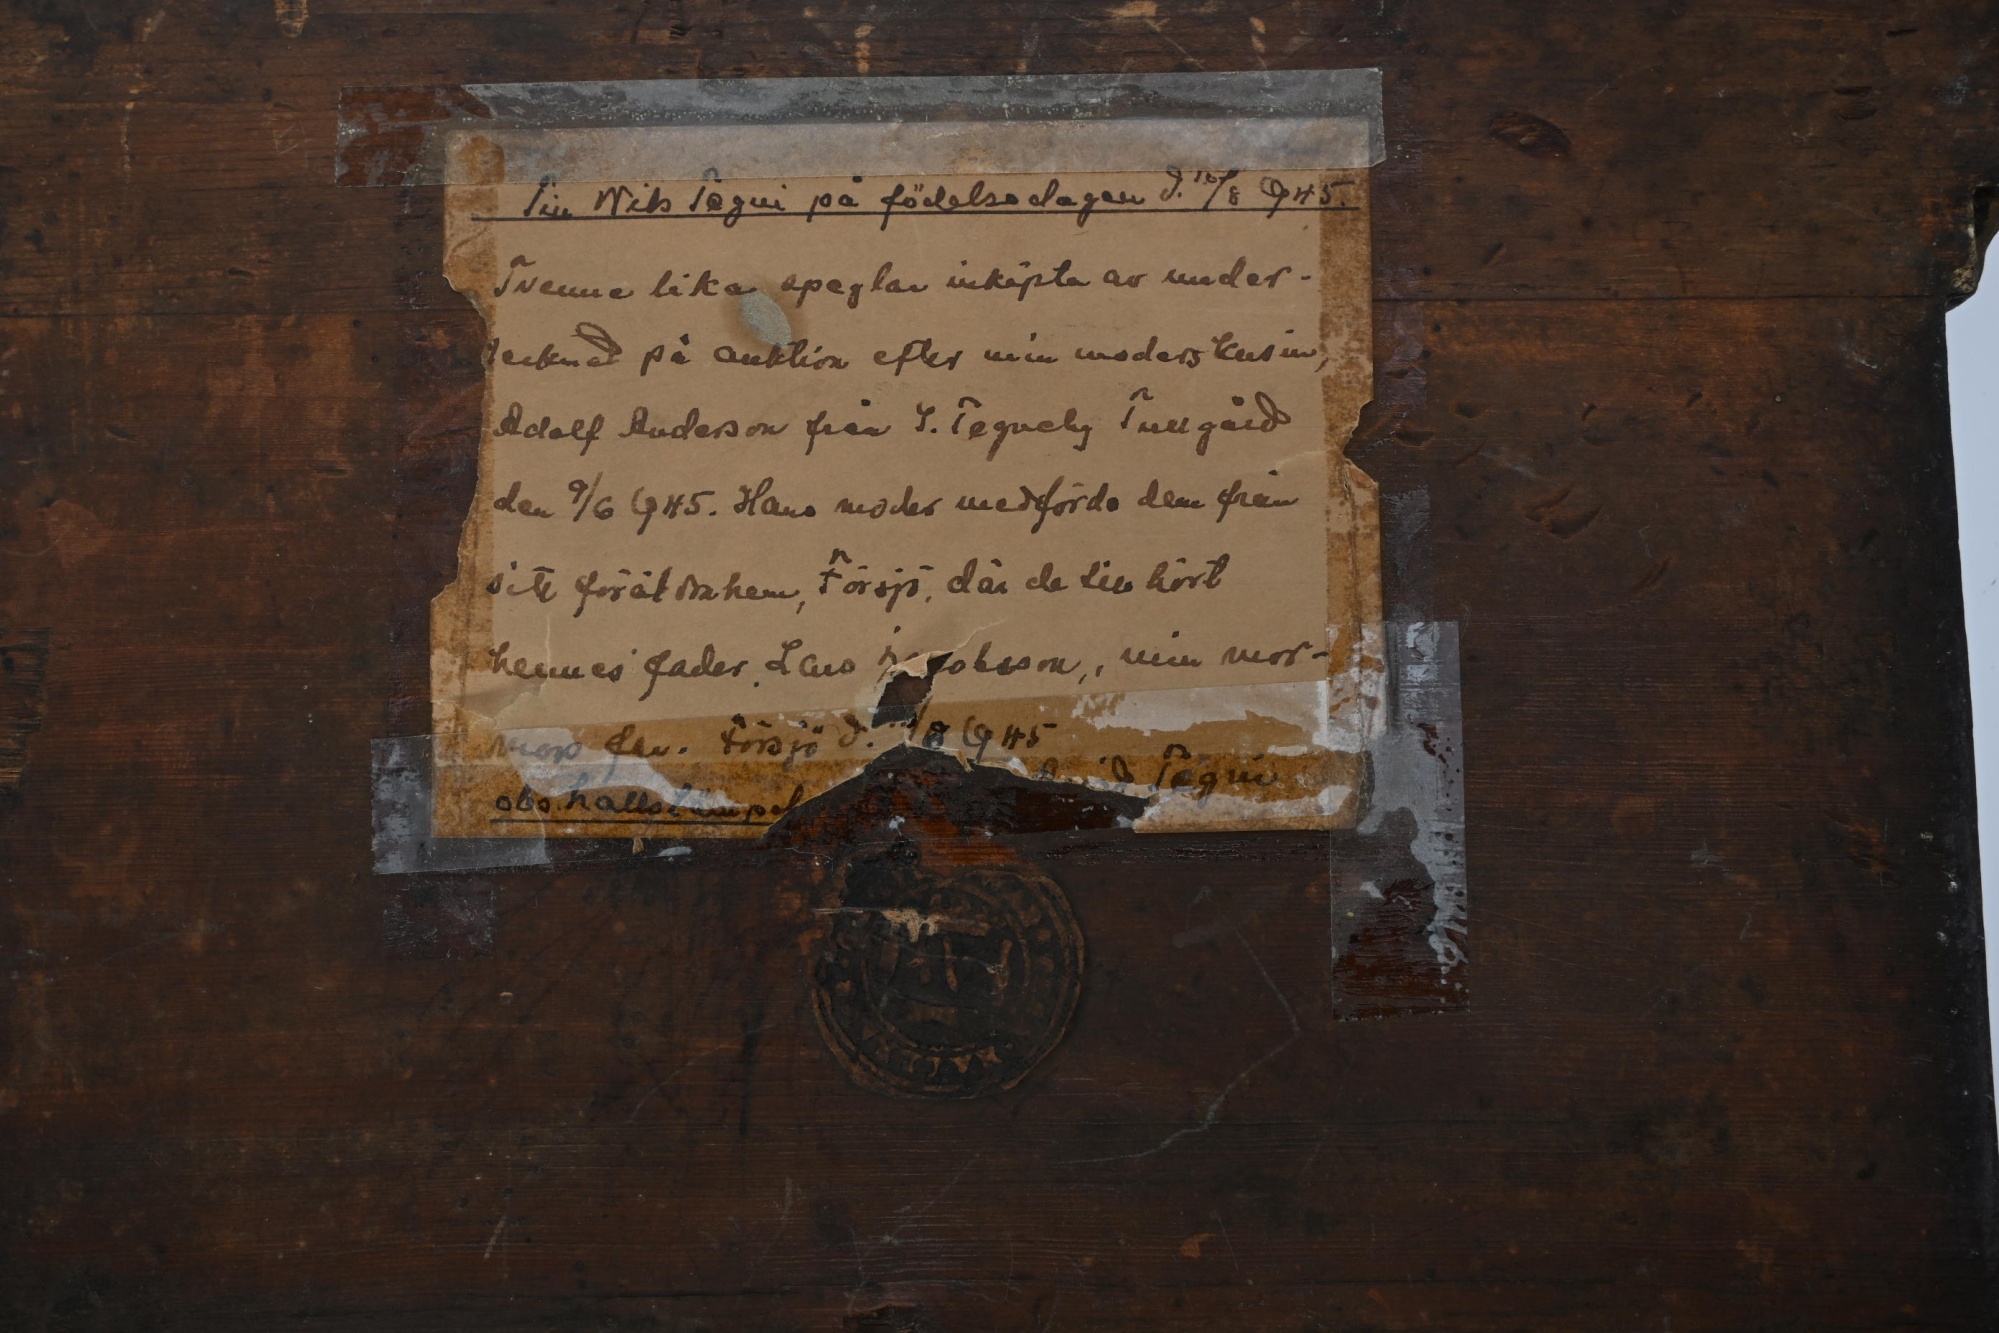 Till Nils Tegni på födelsedagen d. /8 1945.
Tvenne lika speglar inköpta av under-
tecknad på auktion efter min moders kusin,
Adolf Anderson från S. Tegneby Tullgård
den 9/6 1945. Hans moder medförde dem från
sitt föräldrahem, Försjö, där de tillhört
hennes fader, Lars Jacobsson, min mor-
mors far. Försjö d. /8 1945
Tegni
obs. hallstämpel